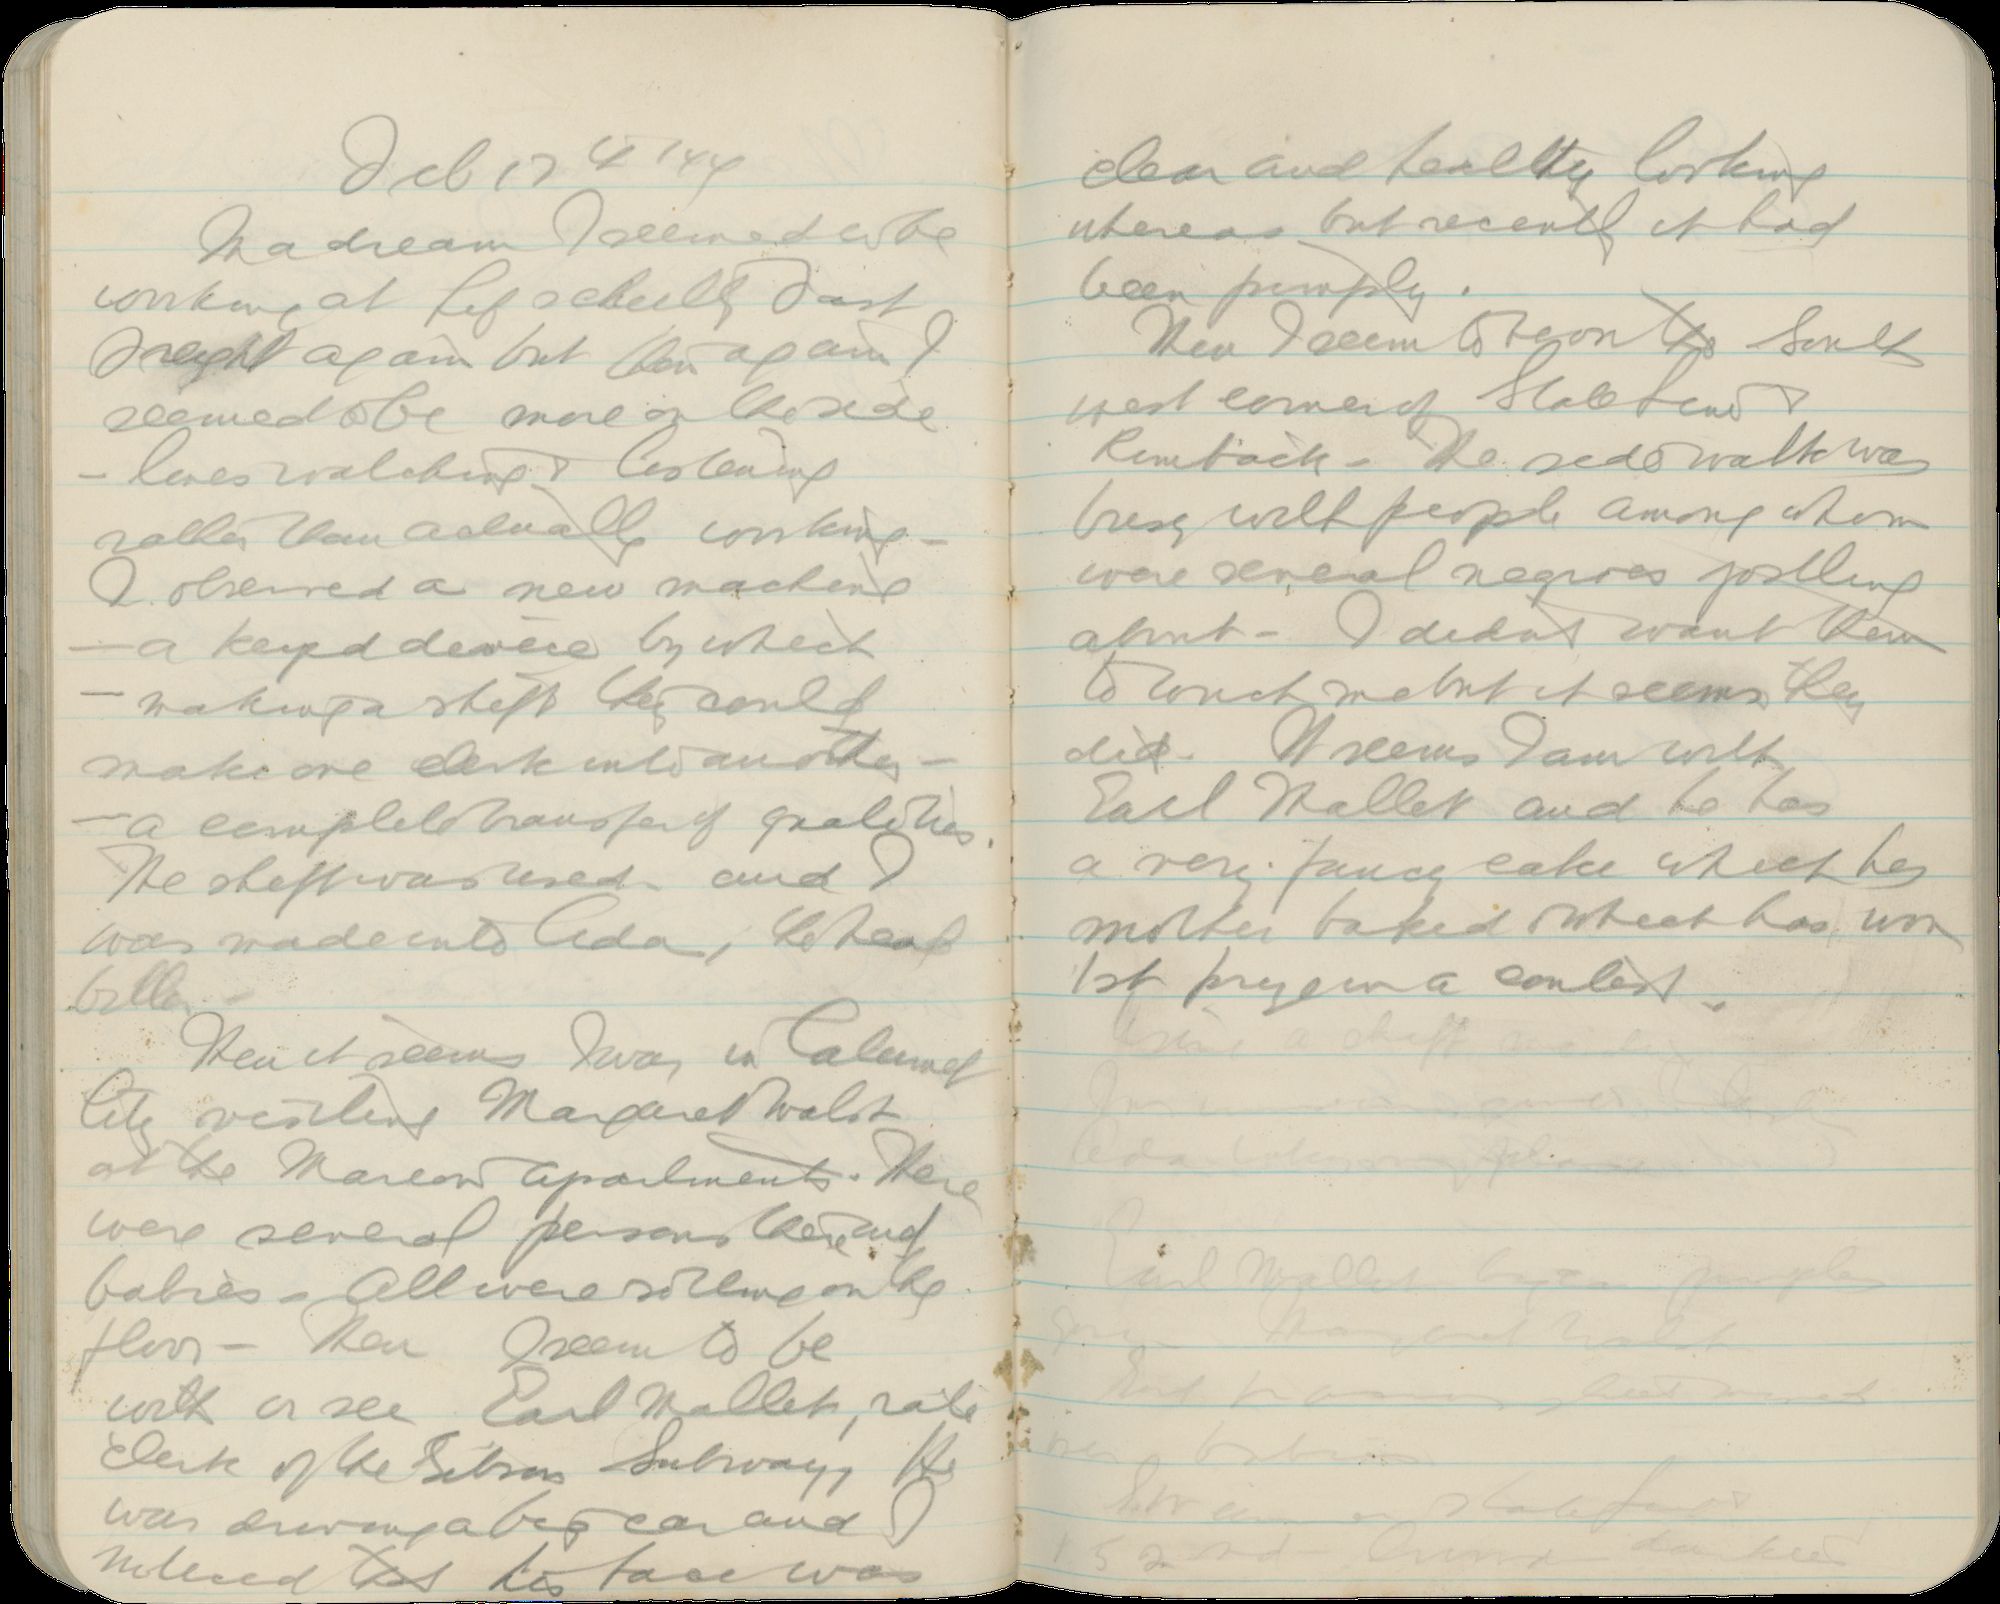 Feb 17th '44
In a dream I seemed to be
working at
Freight again but then again I
seemed to be more on the side
- lines watching & listening
rather than actually working -
I observed a new machine
- a keyed device by which
- making a shift they could
make one clerk into another -
- a complete transfer of qualities.
The shift was used and I
was made into Ada, the head
biller -
Then it seems I was in Calumet
City visiting Margaret Walsh
at the Apartments. There
were several persons there and
babies - All were sitting on the
floor - Then I seem to be
with or see Earl Mallet, rate
clerk of the Gibson Subway, He
was driving a big car and I
noticed that his face was
clear and healthy looking
whereas but recently it had
been pimply.
Then I seem to be on the South
west corner of State Line &
Rimbach - The side walk was
busy with people among whom
were several negroes jostling
about - I didn't want them
to touch me but it seems they
did - It seems I am with
Earl Mallet and he has
a very fancy cake which his
mother baked & which has won
1st prize in a contest.
a shift
Ada
Earl Mallet pimples
Margaret Walsh
babies